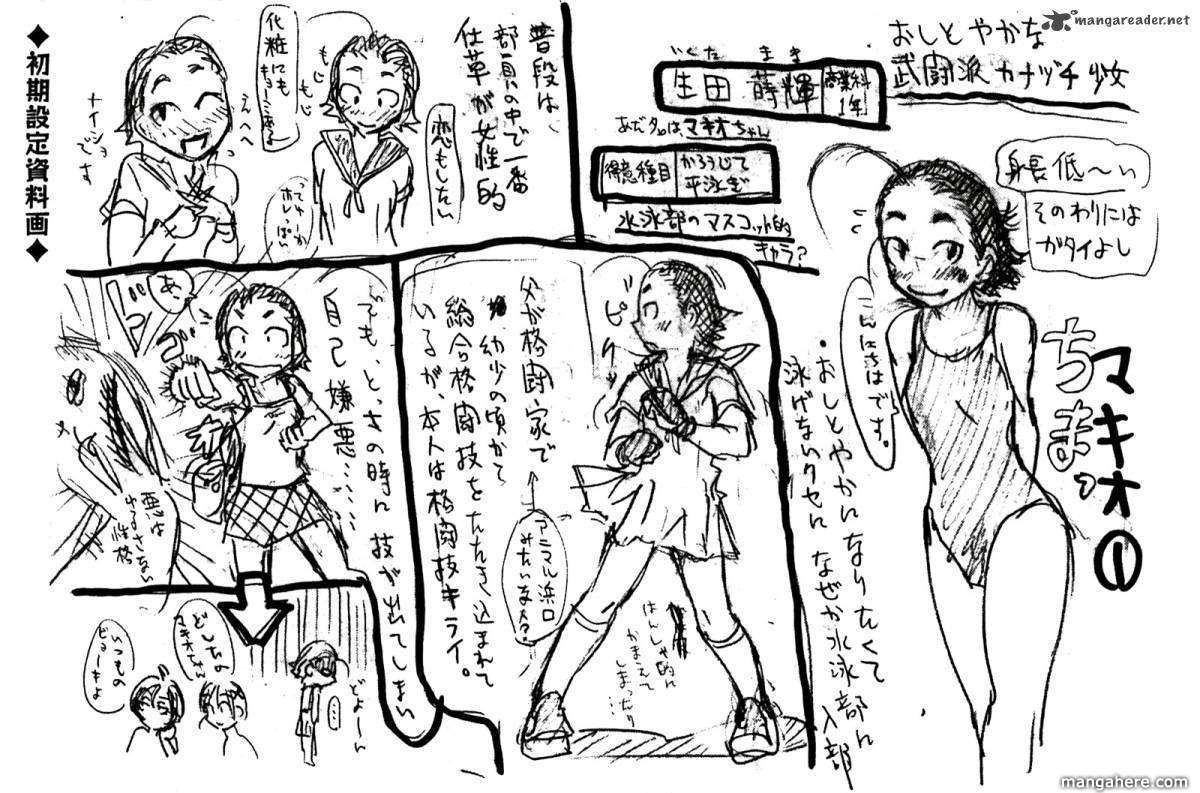 mangareader.net
◆初期設定資料画◆
おしとやかな
武闘派カナヅチ少女
いくた まき
生田 蒔輝
商業科
1年
あだ名はマキオちゃん
得意種目
かろうじて
平泳ぎ
水泳部のマスコット的
キャラ?
身長低〜い
そのわりには
ガタイよし
マキオ①
ちまっ
こんにちはです。
・おしとやかになりたくて
泳げないクセになぜか水泳部に
入部
普段は、
部員の中で一番
仕草が女性的
恋もしたい
もじ
もじ
ってゆーか
ホレっぽい
化粧にも
キョーミある
えへへ
ナイショ
です
父が格闘家で
幼少の頃から
総合格闘技をたたき込まれて
いるが、本人は格闘技キライ。
アニマル浜口
みたいな人?
ビクッ
はんしゃ的に
かまえて
しまったり
…
でも、とっさの時に技が出てしまい
自己嫌悪……
あっ
悪は
ゆるさない
性格
どよーん
…
どしたの
マキオちゃん
いつもの
ビョーキよ
mangahere.com